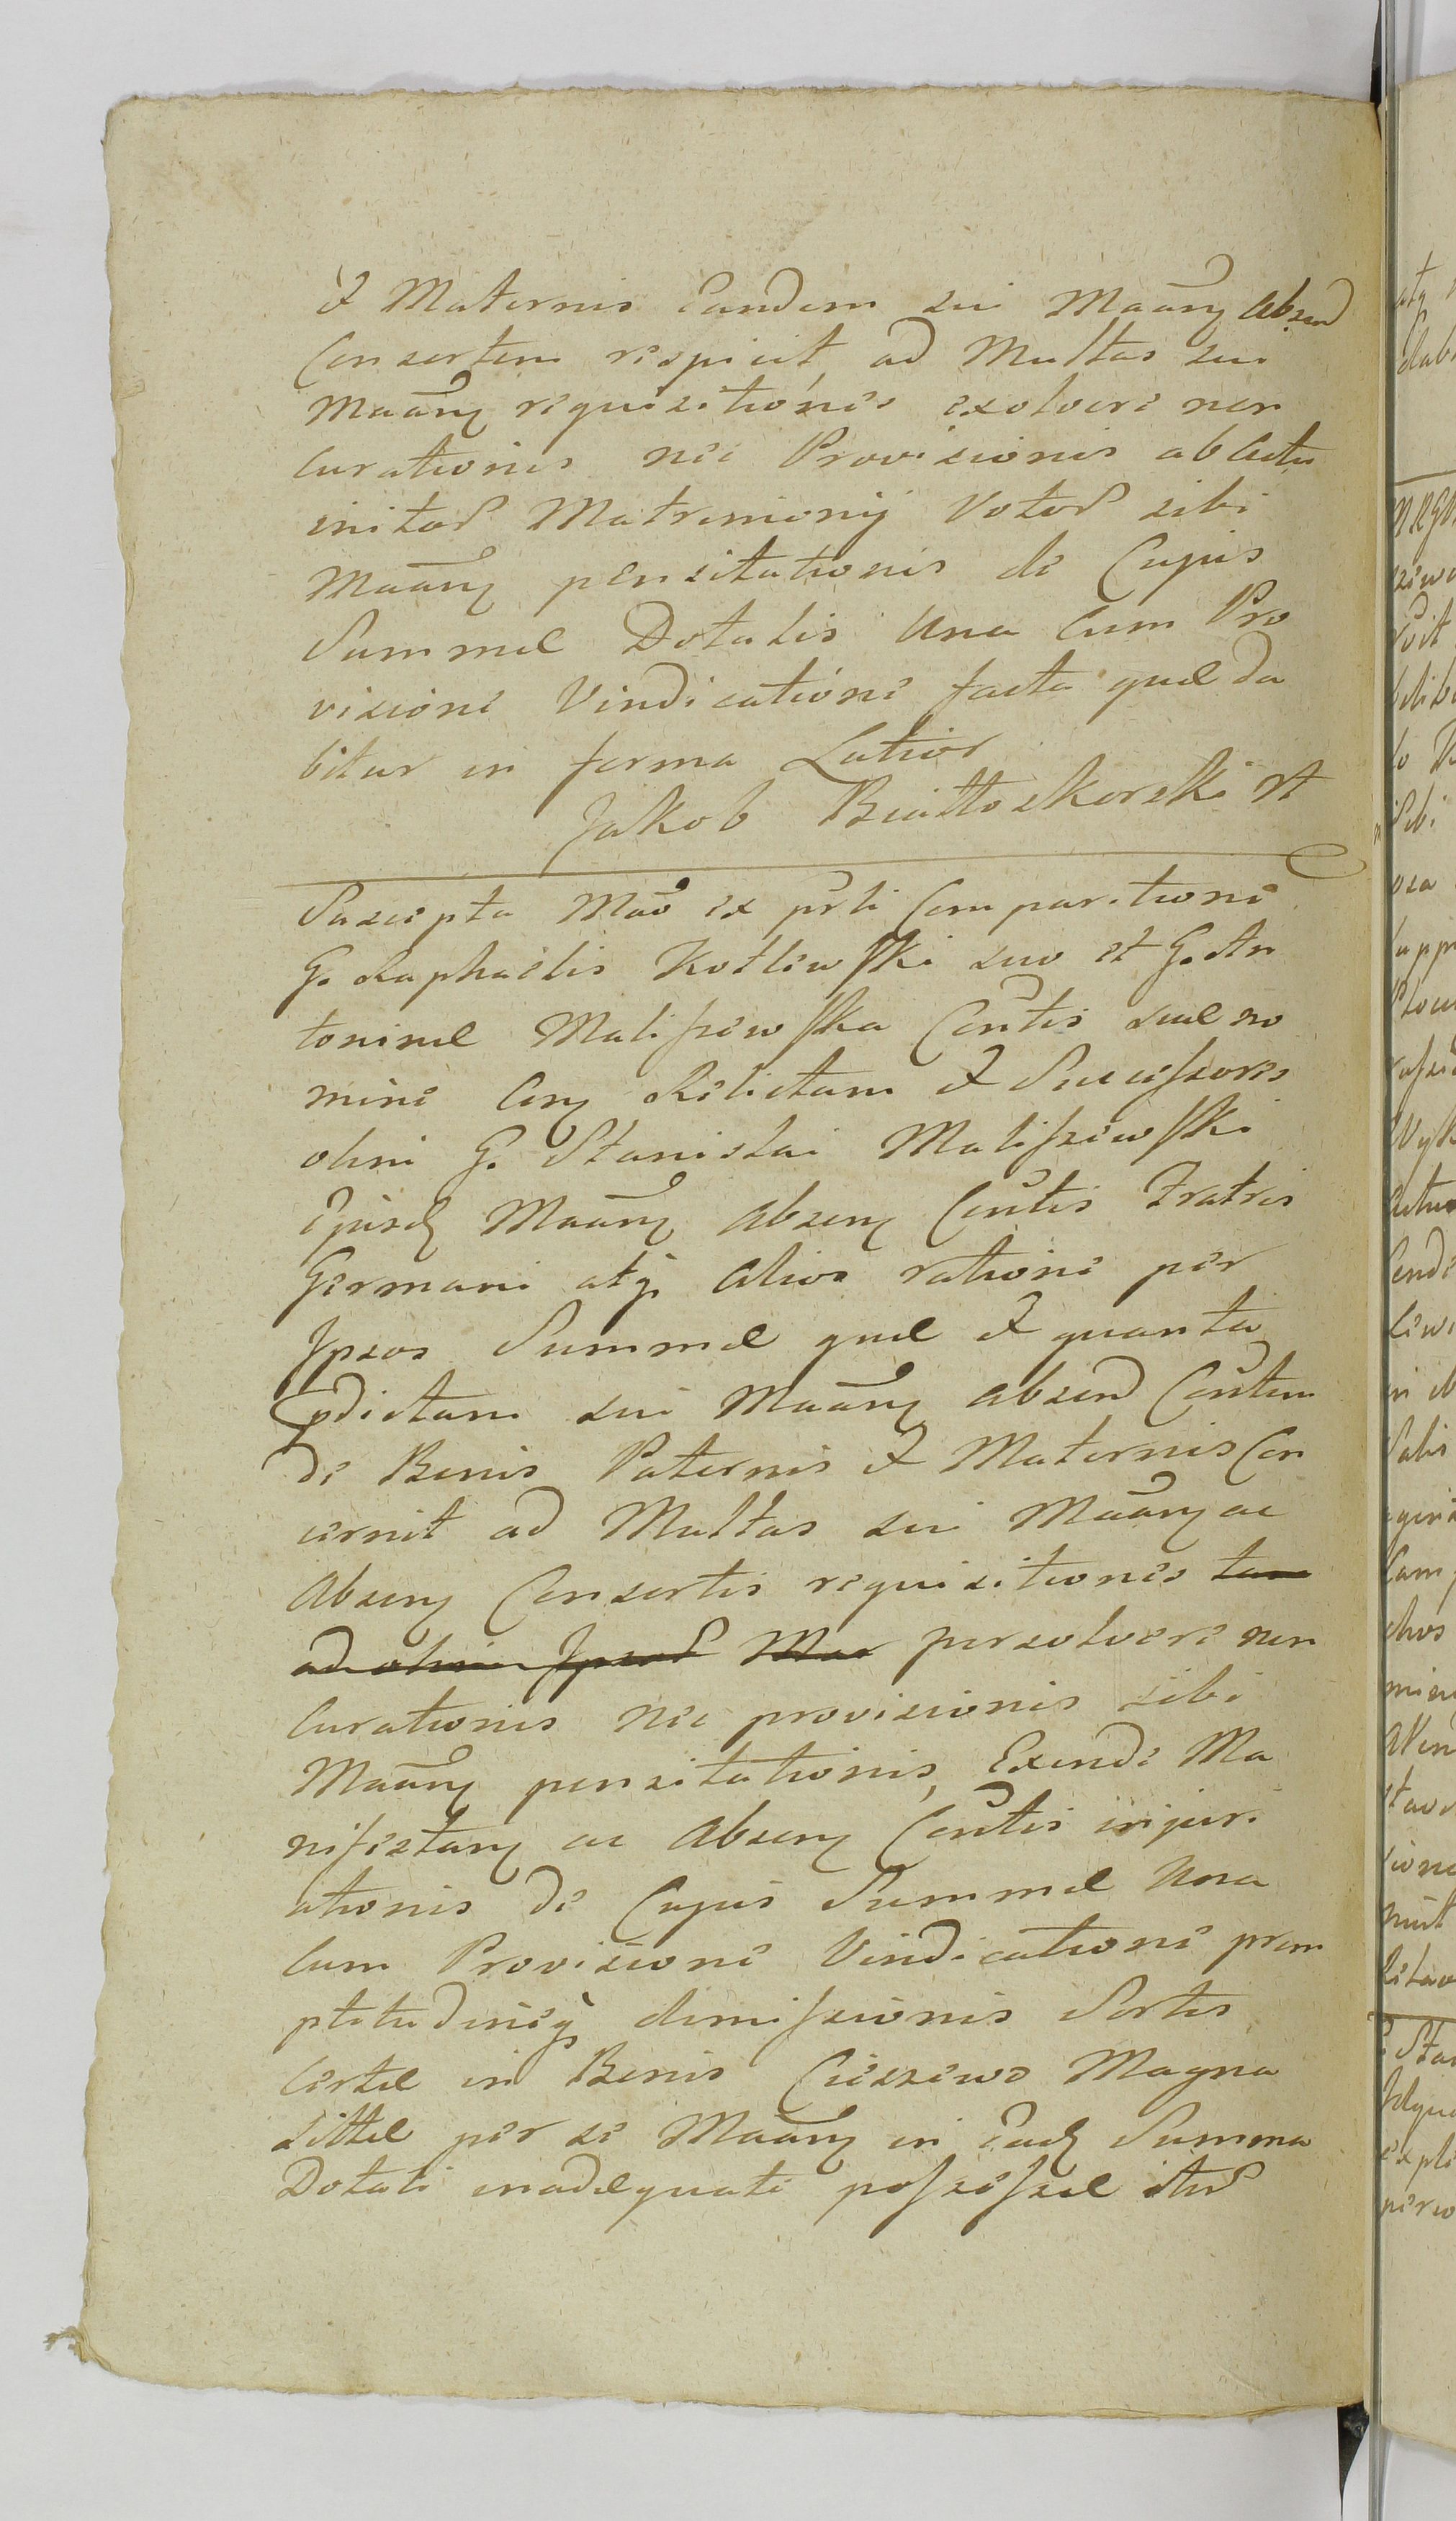 Et Maternis Eandem sui Maãng absend
Consortem respicit, ad Multas sui
Maãng requisitiones exolvere non
curationis nec Provisionis ab Actu
initor Matrimonij Votor sibi
Maãng pensitationis de Cujus
Summæ Dotalis una cum Pro
visione Vindicatione facta quæ da
bitur in forma Latior
Jakob Białłoskorski
Suscepta Mão ex prti Comparitione
G. Raphaelis Kotlewski suo et G. An
toninæ Maliszewska Contis suæ no
mine Con Relictam et Successores
olim G. Stanislai Maliszewski
Ejusd Maãng absen Contis Fratris
Germani atq alios ratione per
Ipsos Summæ quæ et quanta
pdictam sui Maãng absend Contem
de Bonis Paternis et Maternis Con
cernit ad Multas sui Maãng ac
absen Consortis requisitiones tam
ad olim Ipsor Maa persolvere non
curationis nec provisionis sibi
Maãng pensitationis, Exinde Ma
nifestang ac absen Contis injuri
ationis de Cujus Summæ una
cum Provisione Vindicatione prom
ptitudineq dimissionis Sortis
certæ in Bonis Cieszewo Magna
sittæ per se Maãng in ead Summa
Dotali inadæquate possessæ